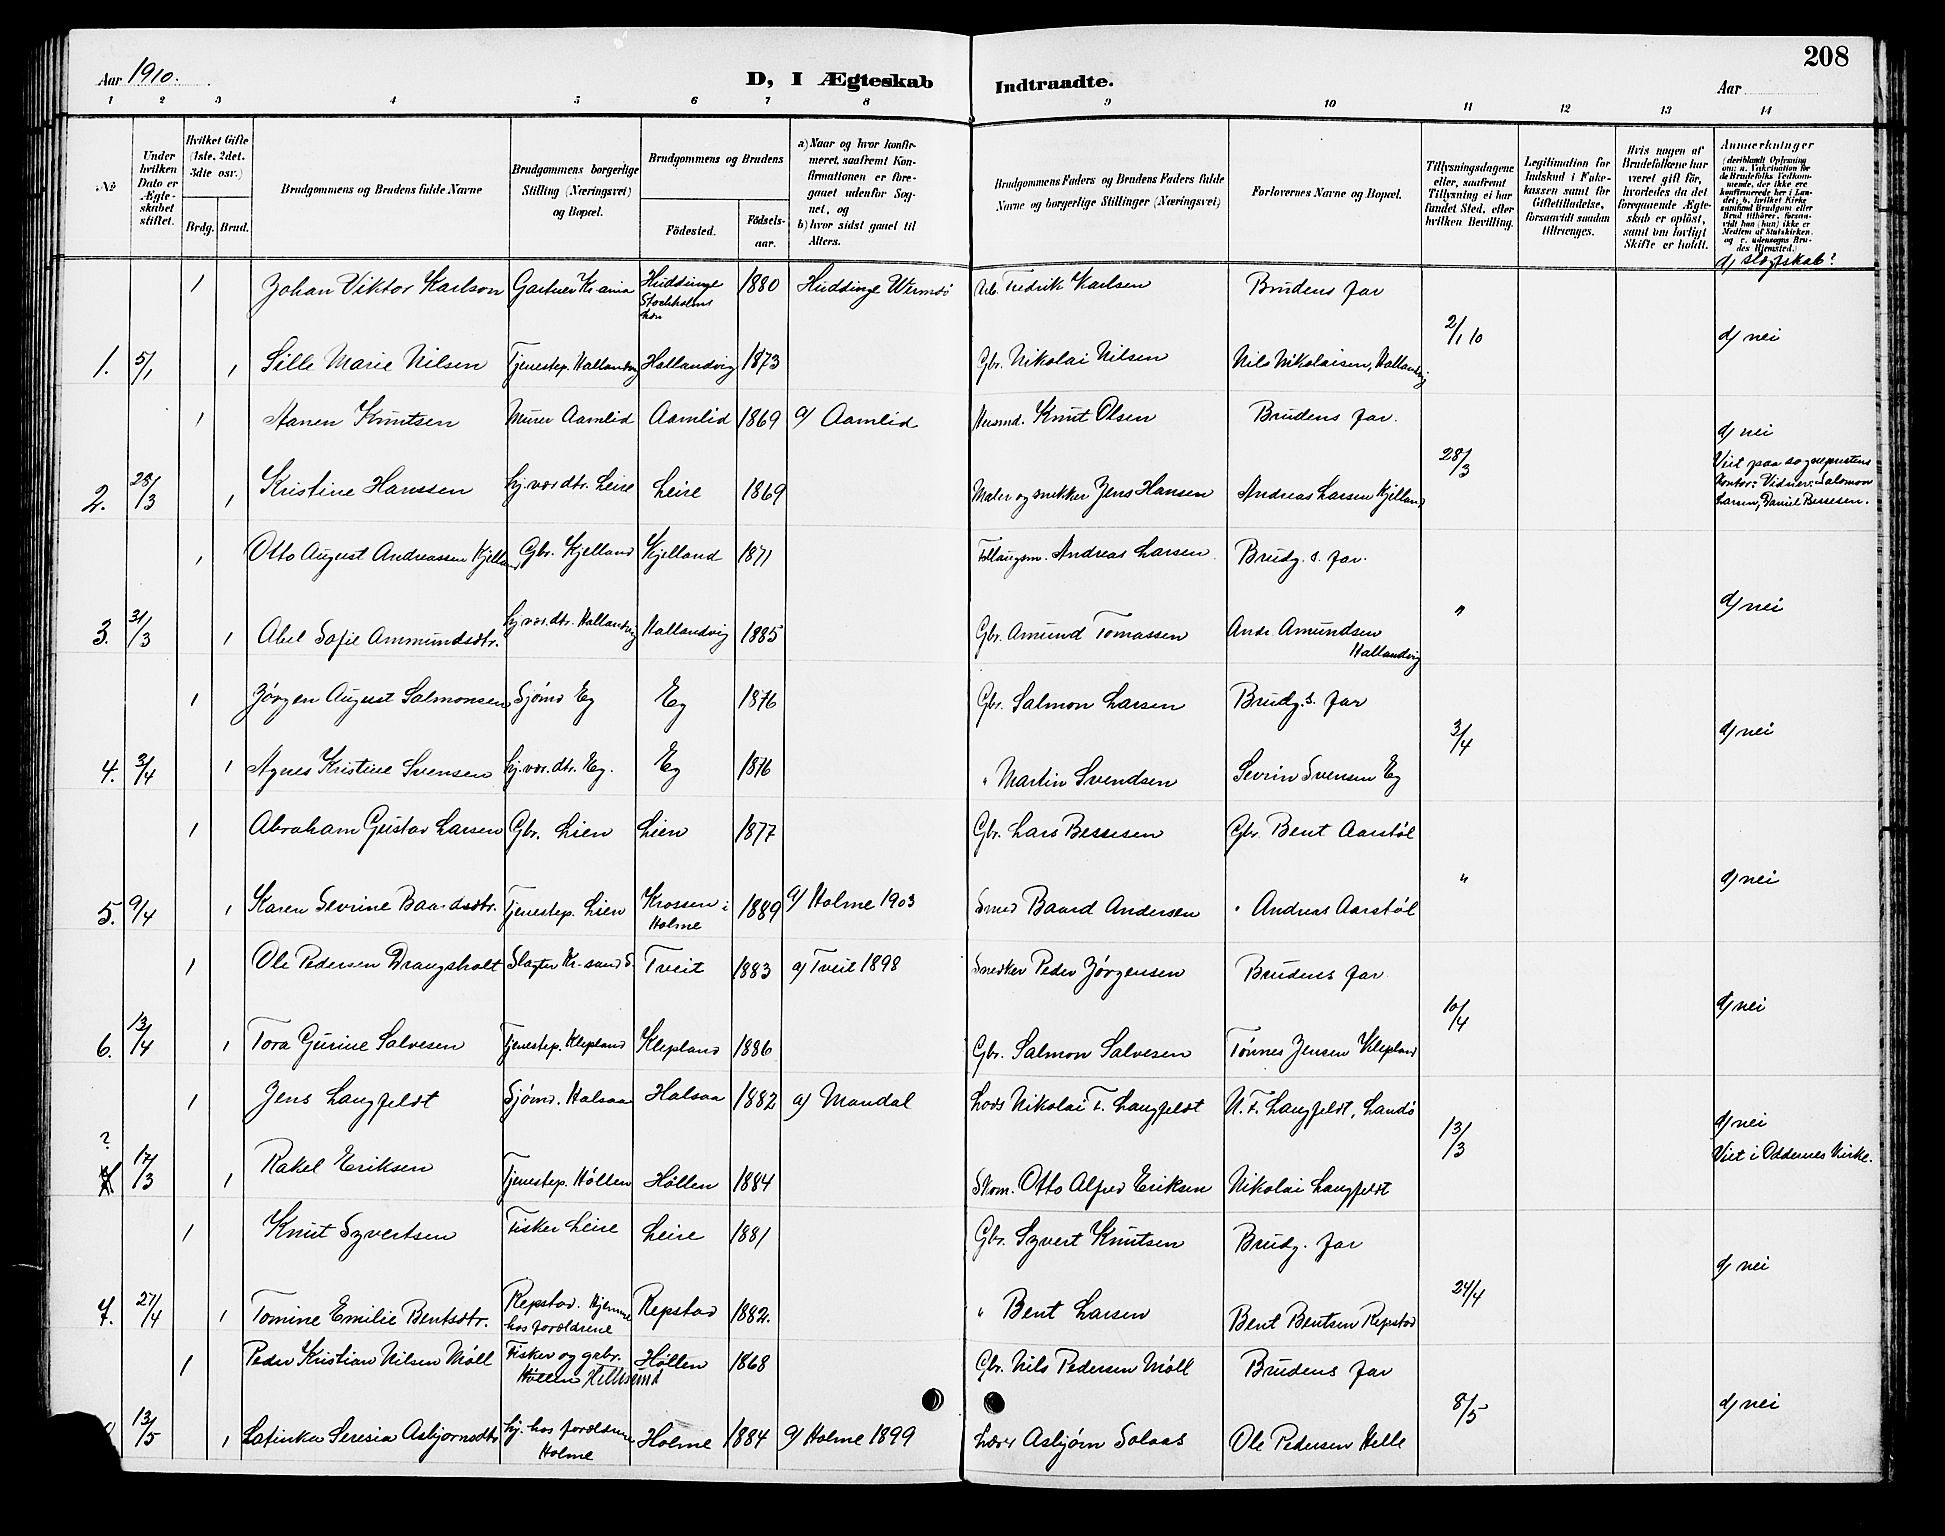 208
Aar 1910.
D, I Ægteskab Indtraadte.
Aar
1 2 3 4 5 6 7 8 9 10 11 12 13 14
No
Under hvilken Dato er Ægteskabet stiftet.
Hvilket Gifte (1ste, 2det, 3die osv.)
Brdg. Brud.
Brudgommens og Brudens fulde Navne
Brudgommens borgerlige Stilling (Næringsvei) og Bopæl.
Brudgommens og Brudens
Fødested. Fødsels-aar.
a) Naar og hvor konfirmeret, saafremt Konfirmationen er foregaaet udenfor Sognet, og
b) hvor sidst gaaet til Alters.
Brudgommens Faders og Brudens Faders fulde Navne og borgerlige Stillinger (Næringsvei)
Forlovernes Navne og Bopæl.
Tillysningsdagene eller, saafremt Tillysning ei har fundet Sted, efter hvilken Bevilling.
Legitimation for Indskud i Enkekassen samt for Giftetilladelse, forsaavidt saadan tiltrænges.
Hvis nogen af Brudefolkene har været gift før, hvorledes da det foregaaende Ægteskab er opløst, samt om lovligt Skifte er holdt.
Anmerkninger
(deriblandt Oplysning om: a. Vakcination for de Brudefolks Vedkommende, der ikke ere konfirmerede her i Landet; b. hvilket Kirkesamfund Brudgom eller Brud tilhører, forsaavidt han (hun) ikke er Medlem af Statskirken, og c. udensogns Brudes Hjemsted.)
d) slegtskab?
1 Johan Viktor Karlson Gartner Kr.ania Huddinge Stockholms Læn 1880 Huddinge Wermdö Arb. Fredrik Karlsen Brudens far
2/1 10 d) nei
1. 5/1 1 Sille Marie Nilsen Tjenestep. Hallandvig Hallandvig 1873 Gbr. Nikolai Nilsen Nils Nikolaisen, Hallandvig
1 Aanen Knutsen Murer Aamlid Aamlid 1869 a) Aamlid Husmd. Knut Olsen Brudens far.
28/3 d) nei
2. 28/3 1 Kristine Hanssen hj.vær.dtr. Leire Leire 1869 Maler og snekker Jens Hansen Andreas Larsen Kjelland Viet paa sogneprestens kontor: Vidner: Salomon Larsen, Daniel Bessesen.
1 Otto August Andreassen Kjelland Gbr. Kjelland Kjelland 1871 Føllaugsm. Andreas Larsen Brudg. s. far.
" d) nei
3. 31/3 1 Abel Sofie Ammundsdtr. hj.vær.dtr. Hallandvig Hallandvig 1885 Gbr. Amund Tomassen Andr. Amundsen Hallandvig
1 Jørgen August Salmonsen Sjømd Eg Eg 1876 Gbr. Salmon Larsen Brudg.s. far
3/4 d) nei
4. 3/4 1 Agnes Kristine Svensen hj.vær.dtr. Eg. Eg 1876 " Martin Svendsen Sevrin Svensen Eg
1 Abraham Gustav Larsen Gbr. Lien Lien 1877 Gbr. Lars Bessesen Gbr. Bent Aarstøl
" d) nei
5. 9/4 1 Karen Sevrine Baardsdtr. Tjenestep. Lien Krossen i Holme 1889 a) Holme 1903 Smed Baard Andersen " Andreas Aarstøl
1 Ole Pedersen Drangsholt Slagter Kr.sand S. Tveit 1883 a) Tveit 1898 Snedker Peder Jørgensen Brudens far
10/4 d) nei
6. 13/4 1 Tora Gurine Salvesen Tjenestep. Klepland Klepland 1886 Gbr. Salmon Salvesen Tønnes Jensen Klepland
1 Jens Langfeldt Sjømd. Halsaa Halsaa 1882 a) Mandal Lods Nikolai F. Langfeldt N. F. Langfeldt, Landø
13/3 d) nei
? 17/3 1 Rakel Eriksen Tjenestep. Høllen Høllen 1884 Skom. Otto Alfred Eriksen Nikolai Langfeldt Viet i Oddernes Kirke.
1 Knut Syvertsen Fisker Leire Leire 1881 Gbr. Syvert Knutsen Brudg. far
24/4 d) nei
7. 27/4 1 Tomine Emilie Bentsdtr. Repstad. Hjemme hos forældrene Repstad 1882. " Bent Larsen Bent Bentsen Repstad
1 Peder Kristian Nilsen Møll Fisker og gabr. Høllen Hellesund Høllen 1868 Gbr. Nils Pedersen Møll Brudens far
8/5 d) nei
13/5 1 Katinka Seresia Asbjørnsdtr hj. hos forældrene Holme Holme 1884 a) Holme 1899 Lærer Asbjørn Solaas Ole Pedersen Helle